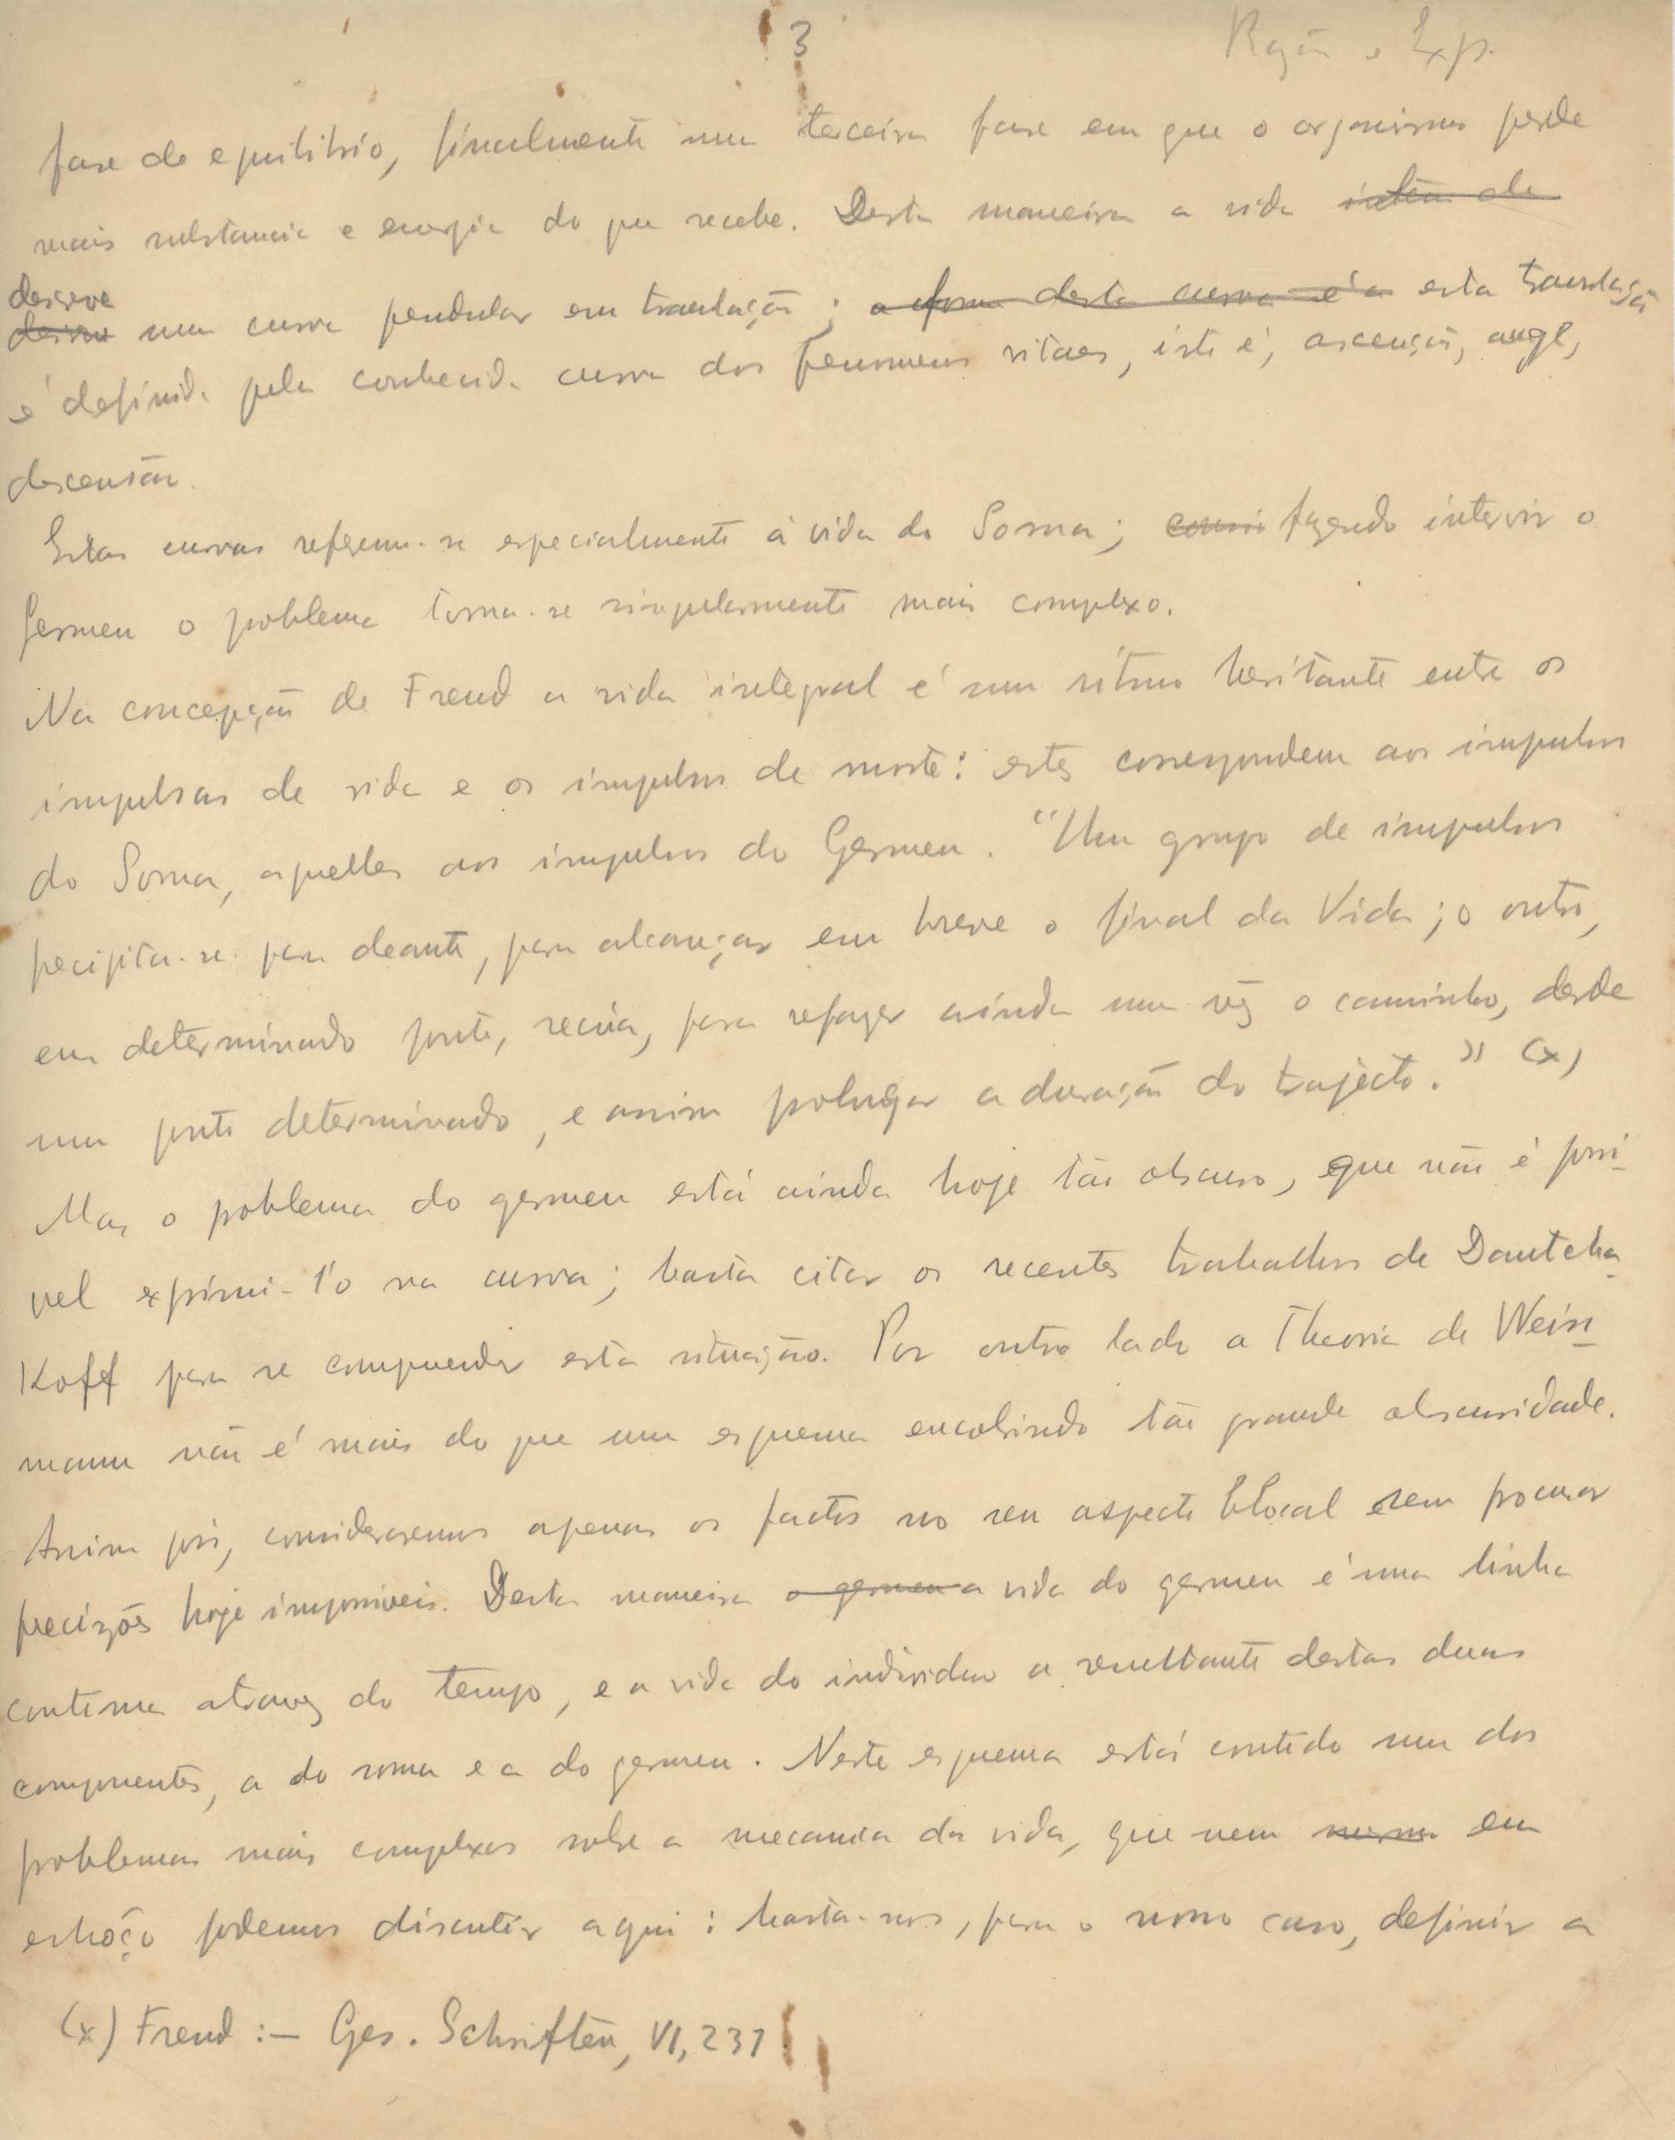 3
Razão e Exp.
fase de equilibrio, finalmente uma terceira fase em que o organismo perde
mais substancia e energia do que recebe. Desta maneira a vida
descreve
uma curva pendular em translação; a forma desta curva é a esta translação
é definida pela conhecida curva dos fenomenos vitaes, isto é, ascenção, auge,
descensão.
Estas curvas referem-se especialmente á vida do Soma; fazendo intervir o
Germen o problema torna-se singularmente mais complexo.
Na concepção de Freud a vida integral é um ritmo hesitante entre os
impulsos de vida e os impulsos de morte: estes correspondem aos impulsos
do Soma, aquelles aos impulsos do Germen. "Um grupo de impulsos
precipita-se para deante, para alcançar em breve o final da Vida; o outro,
em determinado ponto, recúa, para refazer ainda uma vez o caminho, desde
um ponto determinado, e assim prolongar a duração do trajecto." (x)
Mas o problema do germen está ainda hoje tão obscuro, que não é possi-
vel exprimi-l'o na curva; basta citar os recentes trabalhos de Dantcha-
Koff para se comprender esta situação. Por outro lado a Theoria de Weis-
mann não é mais do que um esquema encobrindo tão grande obscuridade.
Assim pois, consideraremos apenas os factos no seu aspecto blocal sem procurar
precizões hoje impossiveis. Desta maneira o germen a vida do germen é uma linha
continua atravez do tempo, e a vida do individuo a resultante destas duas
componentes, a do soma e a do germen. Neste esquema está contido um dos
problemas mais complexos sobre a mecanica da vida, que nem mesmo em
esboço podemos discutir aqui: basta-nos, para o nosso caso, definir a
(x) Freud :— Ges. Schriften, VI, 237